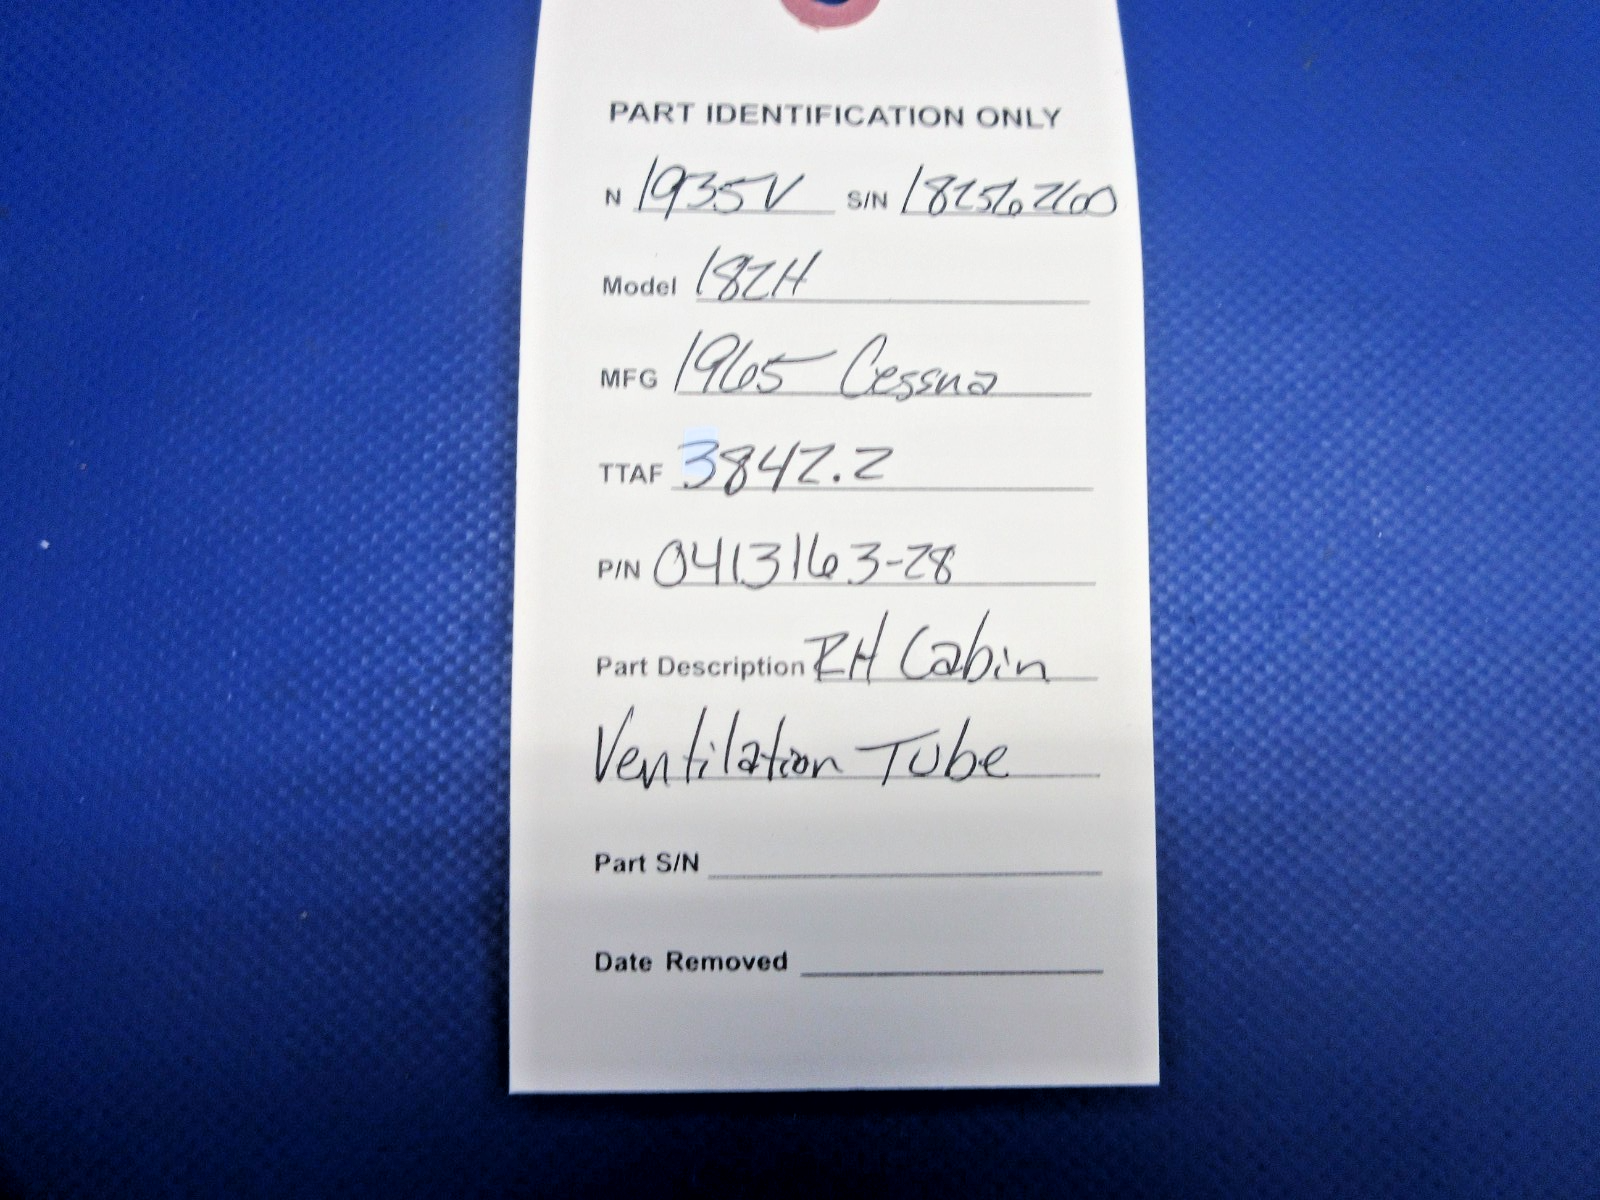 PART IDENTIFICATION ONLY
N 1935V S/N 18256260
Model 182H
MFG 1965 Cessna
TTAF 3842.2
P/N 0413163-28
Part Description RH Cabin
Ventilation Tube
Part S/N
Date Removed